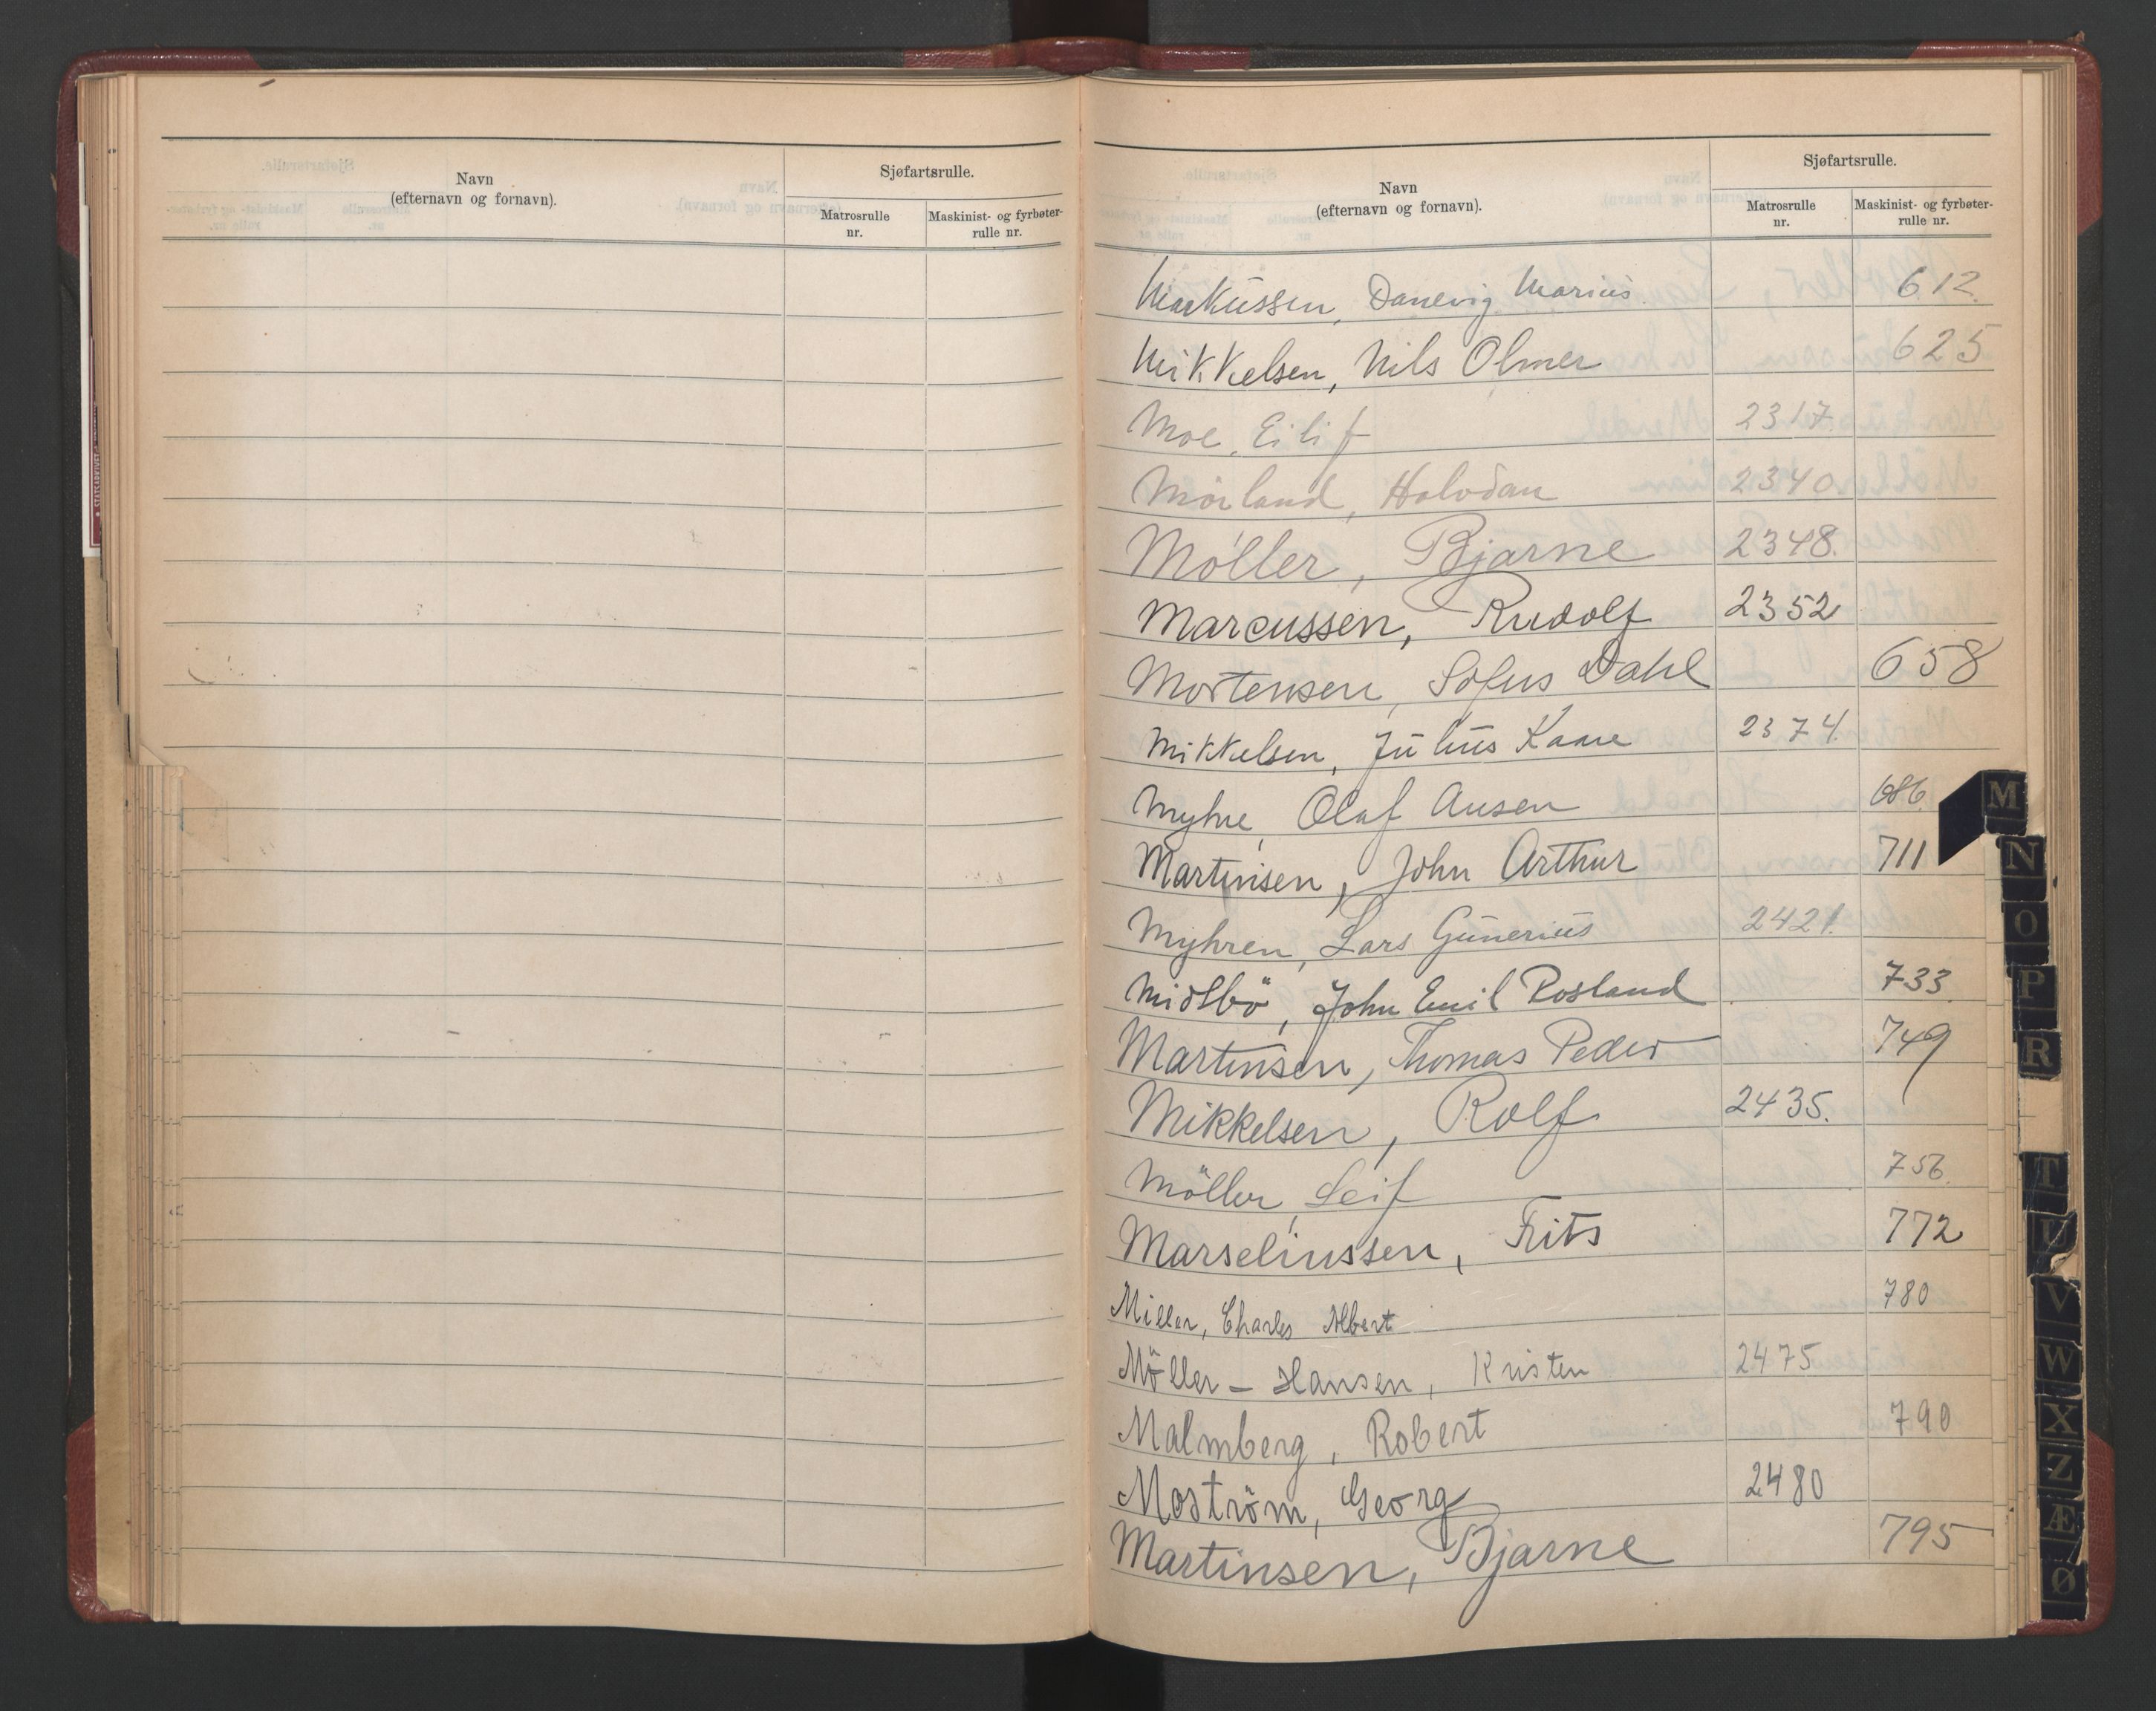 Navn
(efternavn og fornavn).
Sjøfartsrulle.
Matrosrulle
nr.
Maskinist- og fyrbøter-
rulle nr.
Navn
(efternavn og fornavn).
Sjøfartsrulle.
Matrosrulle
nr.
Maskinist- og fyrbøter-
rulle nr.
Markussen, Danevig Marius. 612.
Mikkelsen, Nils Olmer 625
Moe, Eilif 2317.
Mörland, Halvdan 2340
Møller, Bjarne 2348.
Marcussen, Rudolf 2352
Mortensen, Sofus Dahl 658
Mikkelsen, Julius Kaare 2374.
Myhre, Olaf Ausen 686.
Martinsen, John Arthur 711
Myhren, Lars Gunerius 2421.
Midlbö, John Emil Rosland 733.
Martinsen, Thomas Peder 749
Mikkelsen, Rolf 2435.
Möller, Leif 756.
Marseliussen, Frits 772
Miller, Charles Albert 780
Möller - Hansen, Kristen 2475
Malmberg, Robert 790
Moström, Georg 2480
Martinsen, Bjarne 795
M
N
O
P
R
T
U
V
W
X
Z
Æ
Ø